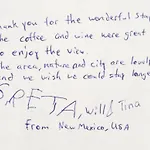 thank you for the wonderful stay
the coffee and wine were great
to enjoy the view.
the area, nature and city are lovely
and we wish we could stay longer
GRETA, Will & Tina
from New Mexico, USA